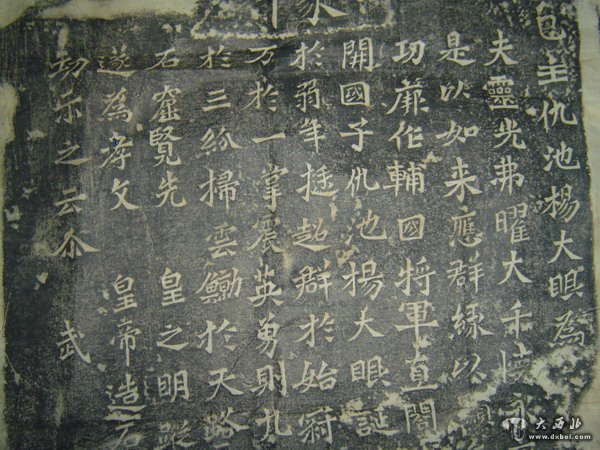 邑主仇池楊大眼為
夫靈光弗曜大千懷永
是以如来應群緣以
功靡作輔國將軍直閤
開國子仇池楊大眼誕
於弱年挺超群於始冠
万於一掌震英勇則九
於三紛掃雲鯨於天路
石窟覽先 皇之明蹤
遂為孝文 皇帝造石
功示之云尒 武
大西北
www.dxbei.com